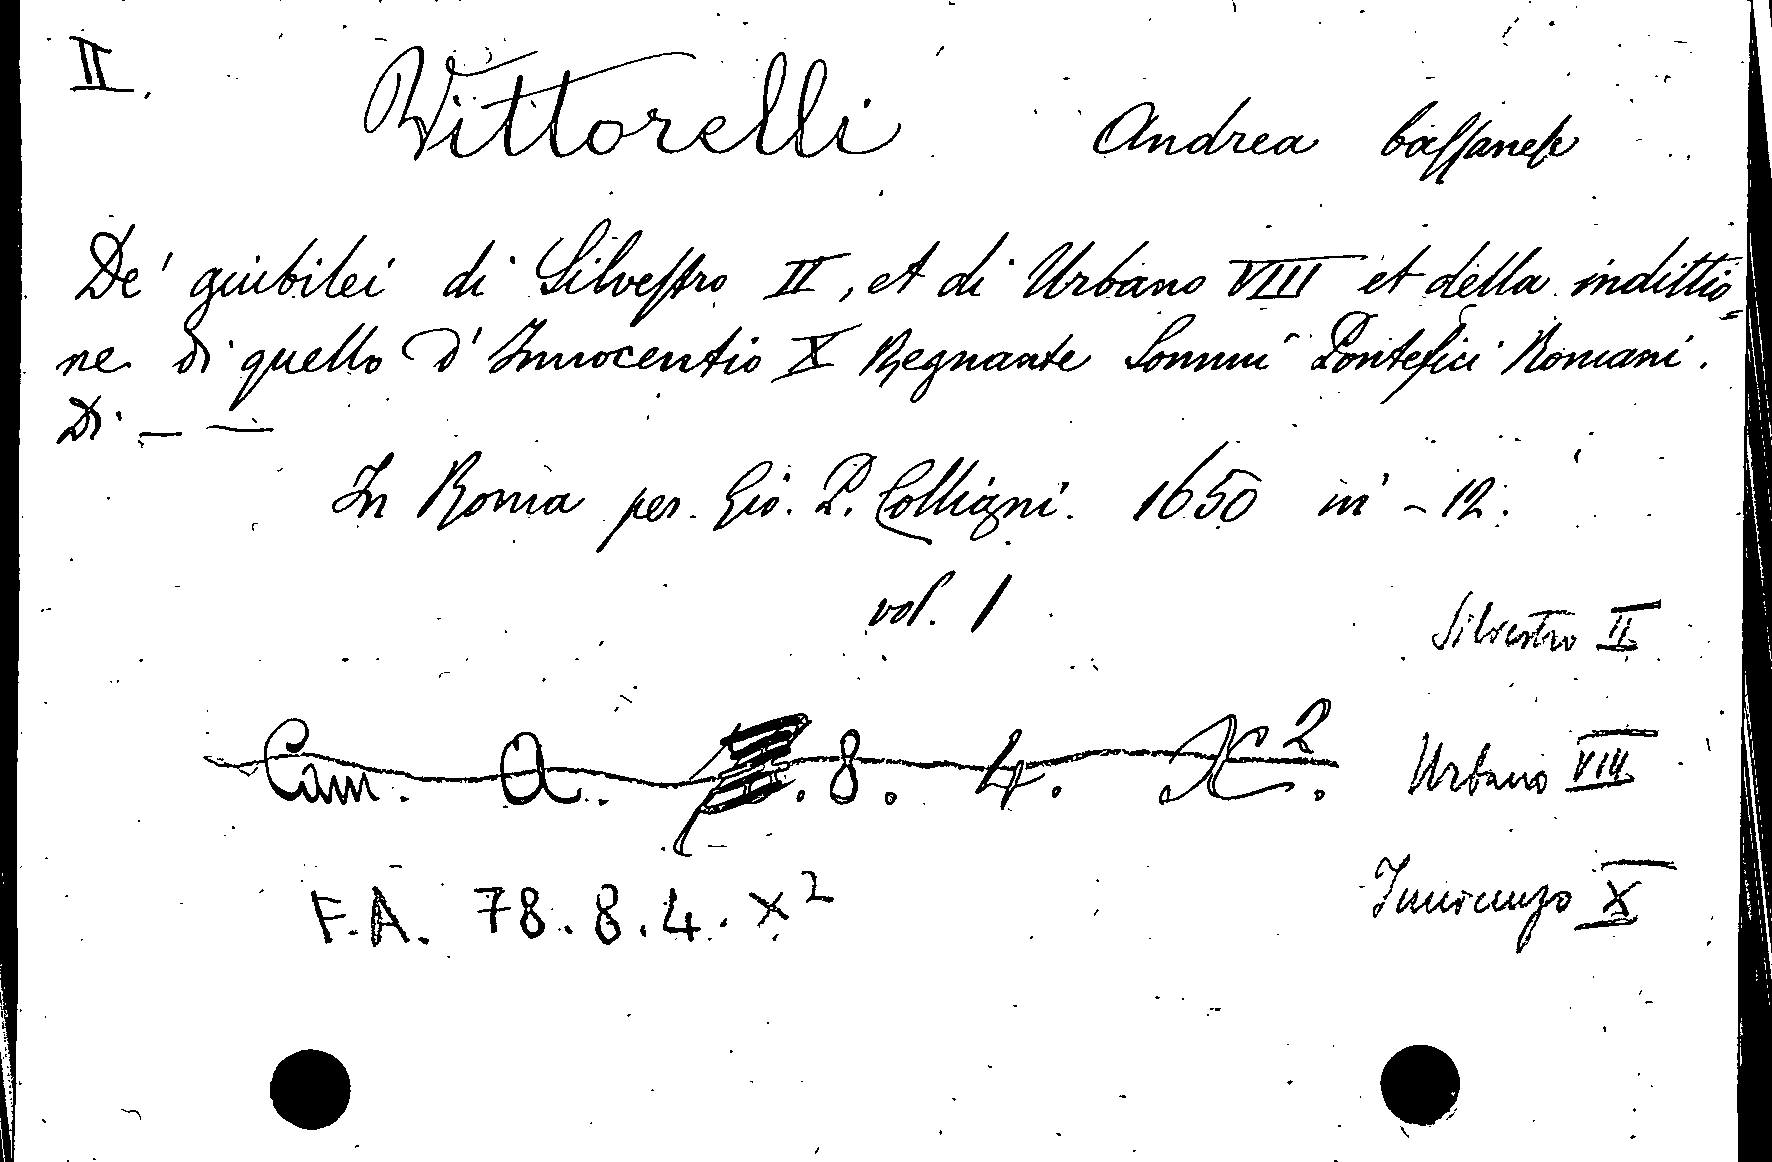 II.
Vittorelli Andrea bassanese
De' giubilei di Silvestro II, et di Urbano VIII et della indittio=
ne di quello d'Innocentio X Regnante Sommi Pontefici Romani.
Di — —
In Roma per Gio. P. Colligni. 1650 in -12.
vol. 1
Silvestro II
Cam. A. . 8. 4. X².
Urbano VIII
F.A. 78.8.4.x²
Innocenzo X